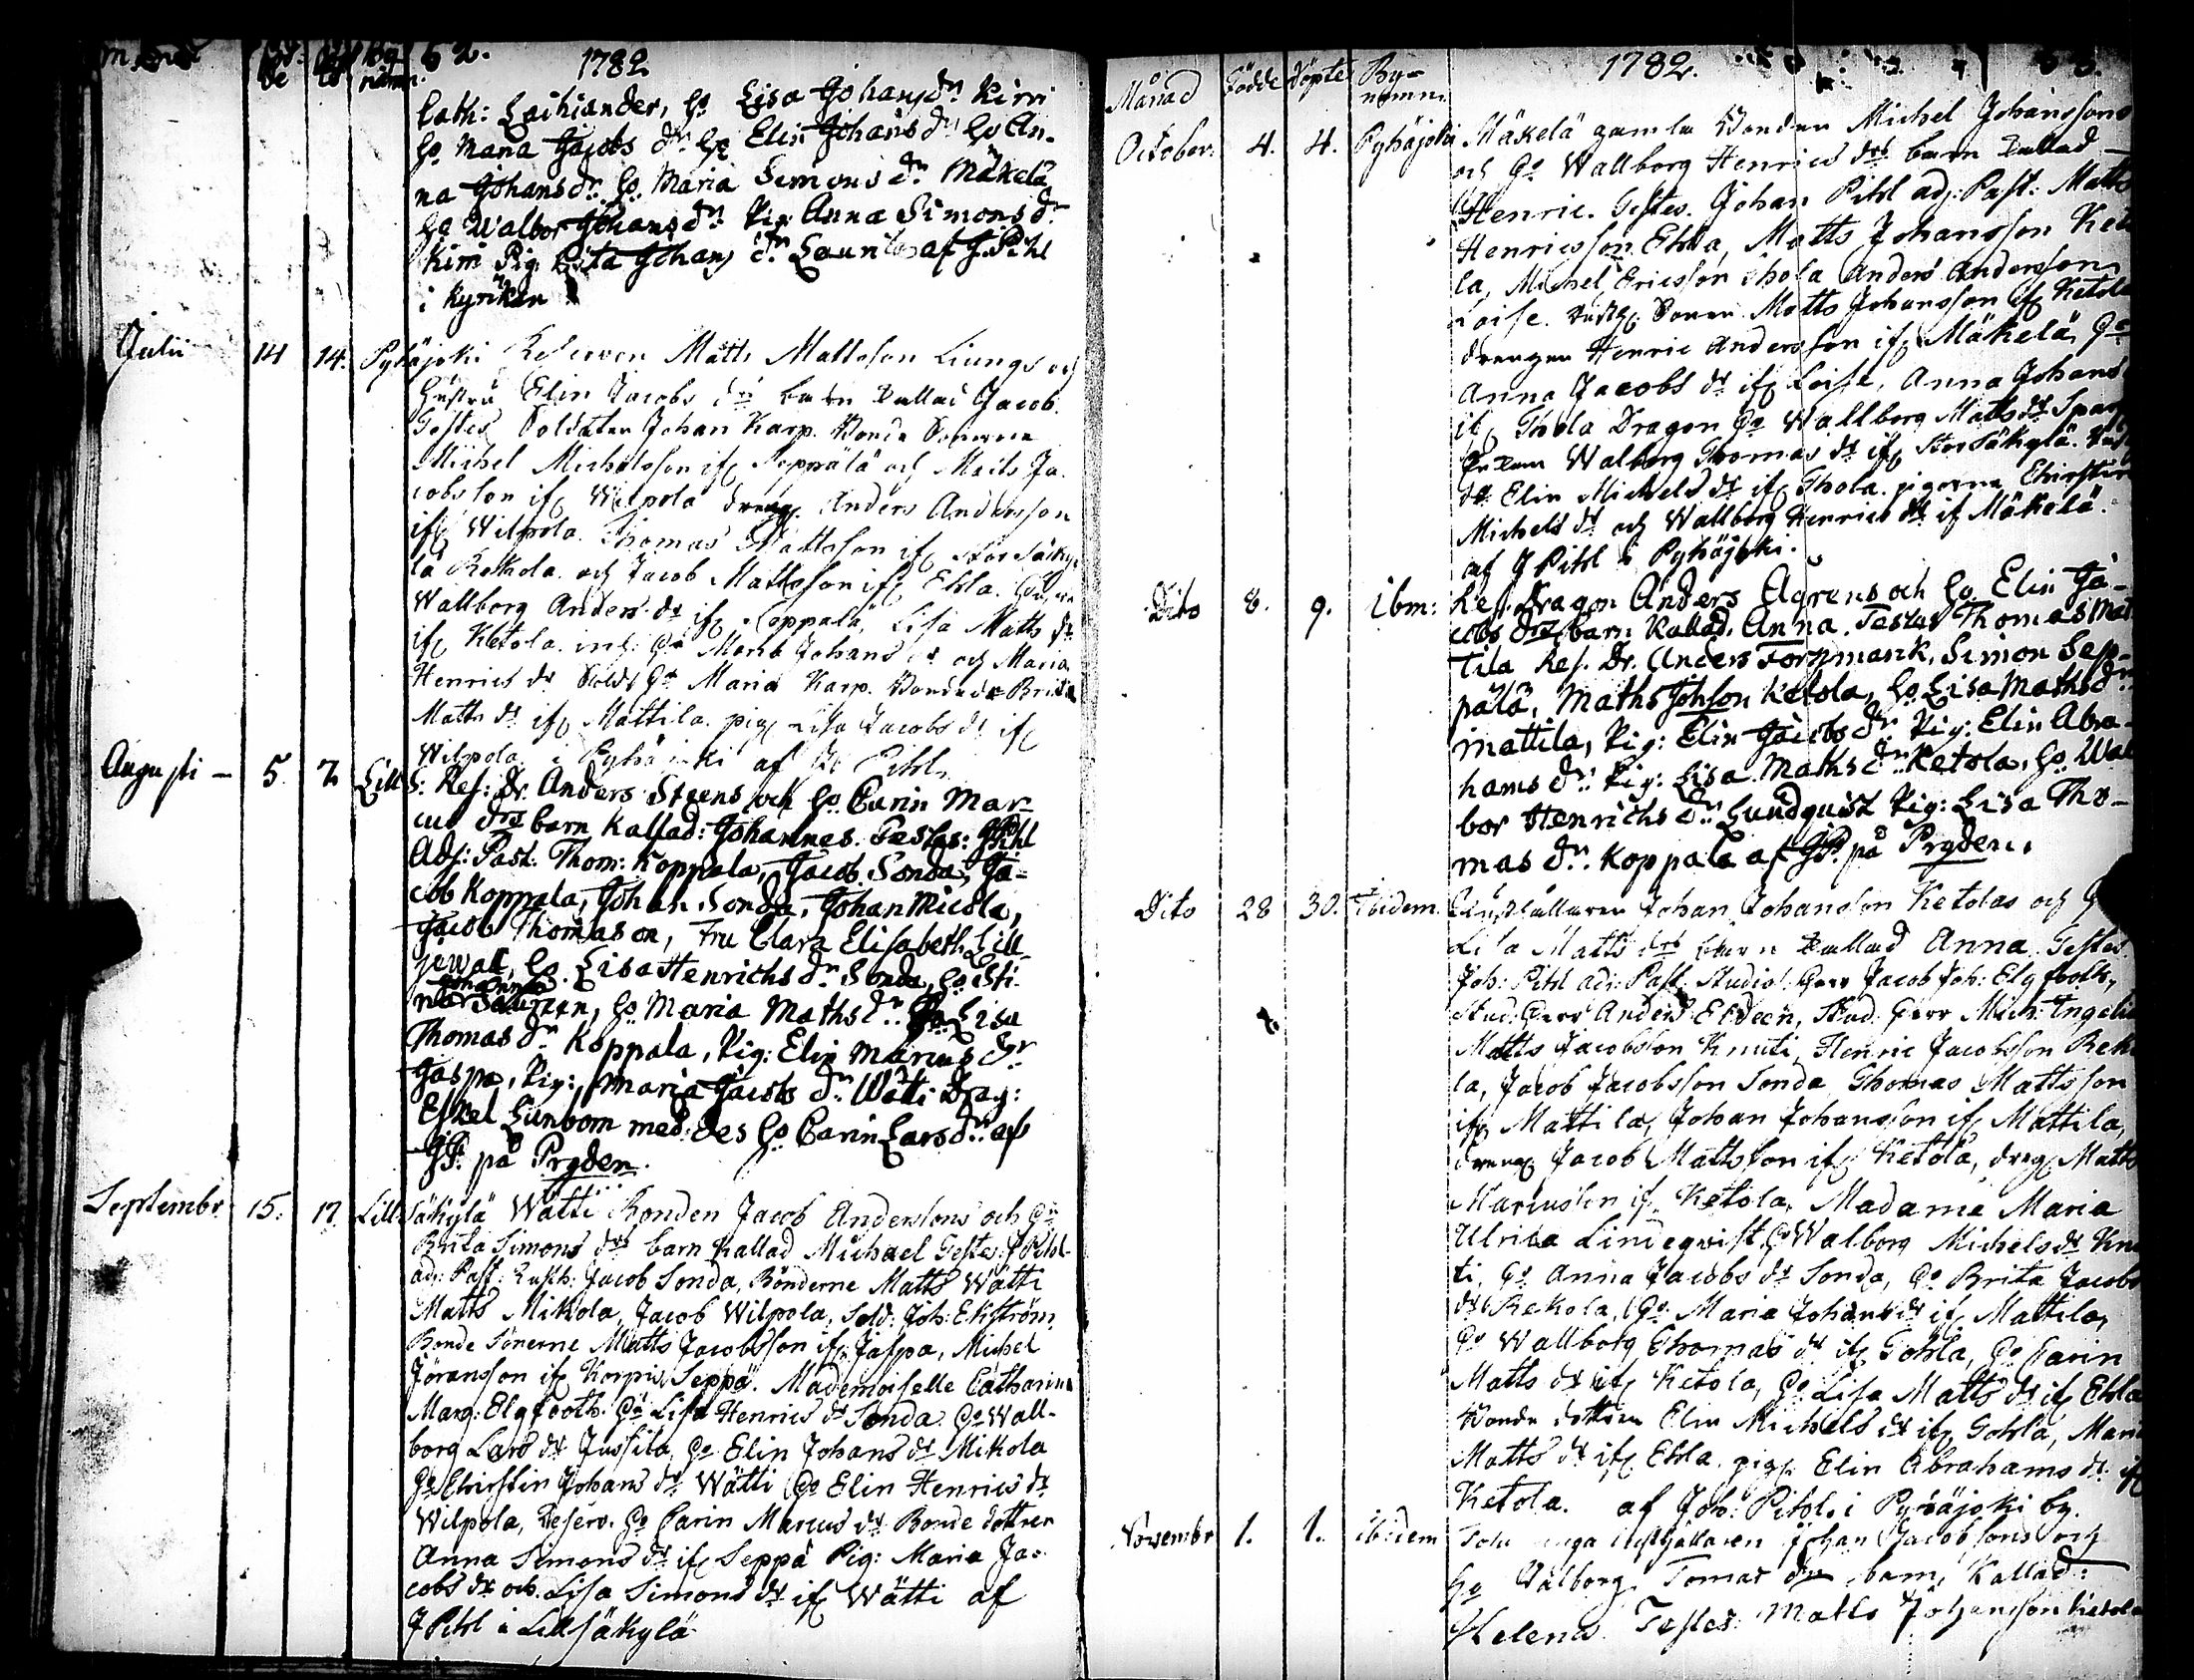 62.
1782
Cath: Laihiander, Ho Lisa Johansdr Kirri
Ho Maria Jacobs dr Ho Elin Johans dr Ho An-
na Johansdr Ho Maria Simons dr Mäkelä
Ho Walbor Johansdr Pig: Anna Simons dr
Kirri Pig Brita Johans dr Launila af J: Pihl
i Kyrkan
Julii 14 14. Pyhäjoki Reserven Matts Mattsson Liungs och
hustru Elin Jacobs drs barn kallad Jacob.
Testes Soldaten Johan Karp. Bonde Sönerne
Michel Michelsson ifr Seppälä och Matts Ja-
cobsson ifr Wilpola dreng Anders Andersson
ifr Wilpola. Thomas Mattsson ifr Stor Säky-
lä Rekola. och Jacob Mattsson ifr Ekla.
Wallborg Anders dr ifr Seppälä, Lisa Matts dr
ifr Ketola. Maria Johans dr och Maria
Henrics dr Sold: Ho Maria Karp. Brita
Matts dr ifr Mattila. pig Lisa Jacobs dr ifr
Wilpola. i Pyhäjoki af Pihl.
Augusti - 5. 7 Lill S: Res: Dr. Anders Steens och Ho Carin Mar-
cus drs barn Kallad: Johannes. Testes: J Pihl
Adj: Past: Thom: Koppala, Jacob Sonda, Ja-
cob Koppala, Johan Sonda, Johan Micola,
Jacob Thomason, Fru Clara Elisabeth Lill-
jewall, Ho Lisa Henrichs dr Sonda, Ho
Johanna
Ho Maria Maths dr Lisa
Thomas dr Koppala, Pig: Elin Marcus dr
Jaspa, Pig: Maria Jacobs dr Wätti Drag:
Eskel Lunbom med des Ho Carin Lars dr af
JP: på Pryden.
Septembr 15. 17 Lill Säkylä Wätti Bonden Jacob Anderssons och Ho
Brita Simons drs barn kallad Michael Testes J Pihl
adj: Past: Rusth: Jacob Sonda, Bönderne Matts Wätti
Matts Mikola, Jacob Wilpola, Sold: Joh: Ekström
Bonde Sönerne Matts Jacobsson ifr Jaspa, Michel
Jöransson ifr Korpis Seppä. Mademoiselle Catharina
Marg: Elgfooth. Ho Lisa Henrics dr Sonda Ho Wall-
borg Lars dr Jussila, Ho Elin Johans dr Mikola
Ho Christin Johans dr Wätti Ho Elin Henrics dr
Wilpola, Reserv. Ho Carin Marcus dr Bonde döttren
Anna Simons dr ifr Seppä Pig: Maria Ja-
cobs dr och Lisa Simons dr ifr Wätti af
J Pihl i Lill säkylä
Månad Födde döpte By-
namn
1782.
October. 4. 4. Pyhäjoki Mäkelä gamla Bonden Michel Johanssons
och Ho Wallborg Henrics drs barn kallad
Henric. Testes. Johan Pihl adj: Past: Matts
Henricsson Ekla, Matts Johansson Keto
la, Michel Ericsson Thola Anders Andersson
Loise. Sonen Matts Johansson ifr Ketola
drengen Henric Andersson ifr Mäkelä, Ho
Anna Jacobs dr ifr Loise, Anna Johans
ifr Thola Dragon Ho Wallborg Matts dr
Walborg Thomas dr ifr Stor Säkylä.
Elin Michels dr ifr Thola. pigorna Christin
Michels dr och Wallborg Henrics dr if Mäkelä.
af J Pihl i Pyhäjoki.
Dito 8. 9. ibm: Res. Dragon Anders Agrens och Ho Elin Ja-
cobs drs barn Kallad. Anna. Testes Thomas Mat
tila Res. Dr. Anders Forszmark, Simon Sep-
pälä, Maths Johson Ketola, Ho Lisa Maths dr
Mattila, Pig: Elin Jacobs dr Pig: Elin Abra-
hams dr Pig: Lisa Maths dr Ketola, Ho Wal
bor Henrichs dr Lundquist Pig: Lisa Tho-
mas dr. Koppala af JP: på Pryden.
Dito 28 30. Ibidem. Rusthållaren Johan Johansson Ketolas och
Lisa Matts drs barn kallad Anna. Testes
Joh: Pihl adj: Past: Studios: Herr Jacob Joh: Elgfooth,
Stud: Herr Anders Eldeen, Stud: Herr Mich: Ingeli
Matts Jacobsson Knuti, Henric Jacobsson Reko
la, Jacob Jacobsson Sonda Thomas Mattsson
ifr Mattila, Johan Johansson ifr Mattila,
dreng Jacob Mattsson ifr Ketola, dreg Matts
Marcusson ifr Ketola, Madame Maria
Ulrica Lindeqvist, Ho Walborg Michels dr Knu
ti, Ho Anna Jacobs dr Sonda, Ho Brita Jacobs
dr Rekola, Ho Maria Johans dr ifr Mattila,
Ho Wallborg Thomas dr ifr Tohla, Ho Carin
Matts dr ifr Ketola, Ho Lisa Matts dr if Ekla
Bonde dottren Elin Michels dr ifr Tohla, Maria
Matts dr ifr Ekla. pigs Elin Abrahams dr ifr
Ketola. af Joh: Pihl. i Pyhäjoki by.
Novembr 1. 1. ibidem Rusthållaren Johan Jacobsons och
Ho Walborg Tomas drs barn, Kallad:
Helena. Testes: Matts Johansson Ketola